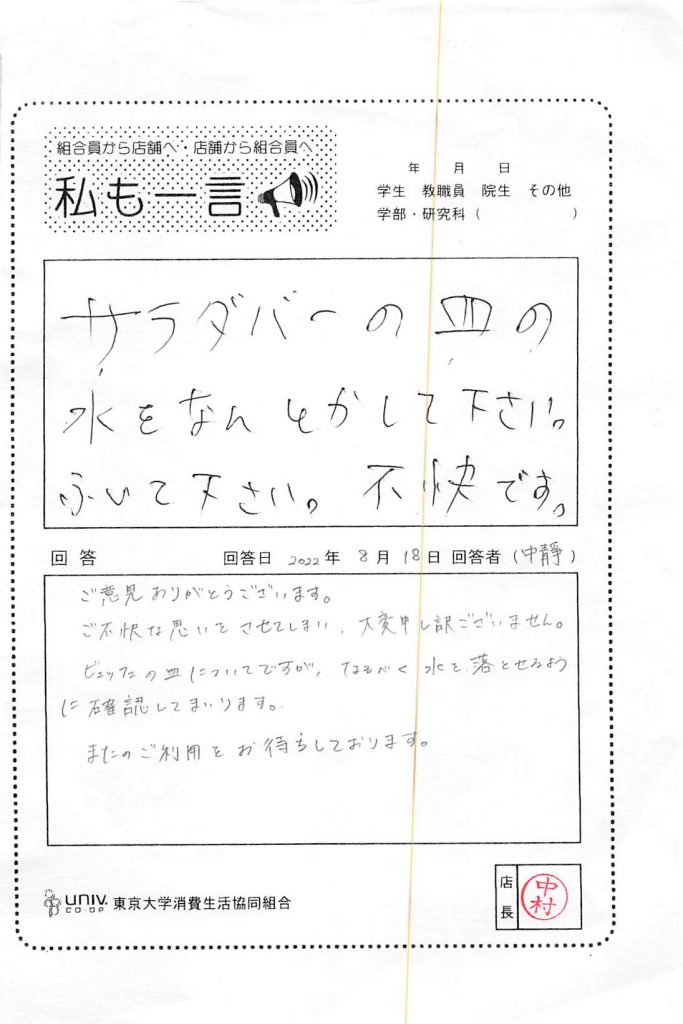 組合員から店舗へ・店舗から組合員へ
私も一言
年 月 日
学生 教職員 院生 その他
学部・研究科( )
サラダバーの皿の
水をなんとかして下さい。
ふいて下さい。不快です。
回答 回答日 2022年 8月 18日 回答者(中靜)
ご意見ありがとうございます。
ご不快な思いをさせてしまい、大変申し訳ございません。
ビュッフェの皿についてですが、なるべく水を落とせるよう
に確認してまいります。
またのご利用をお待ちしております。
UNIV.
CO-OP
東京大学消費生活協同組合
店長
中村